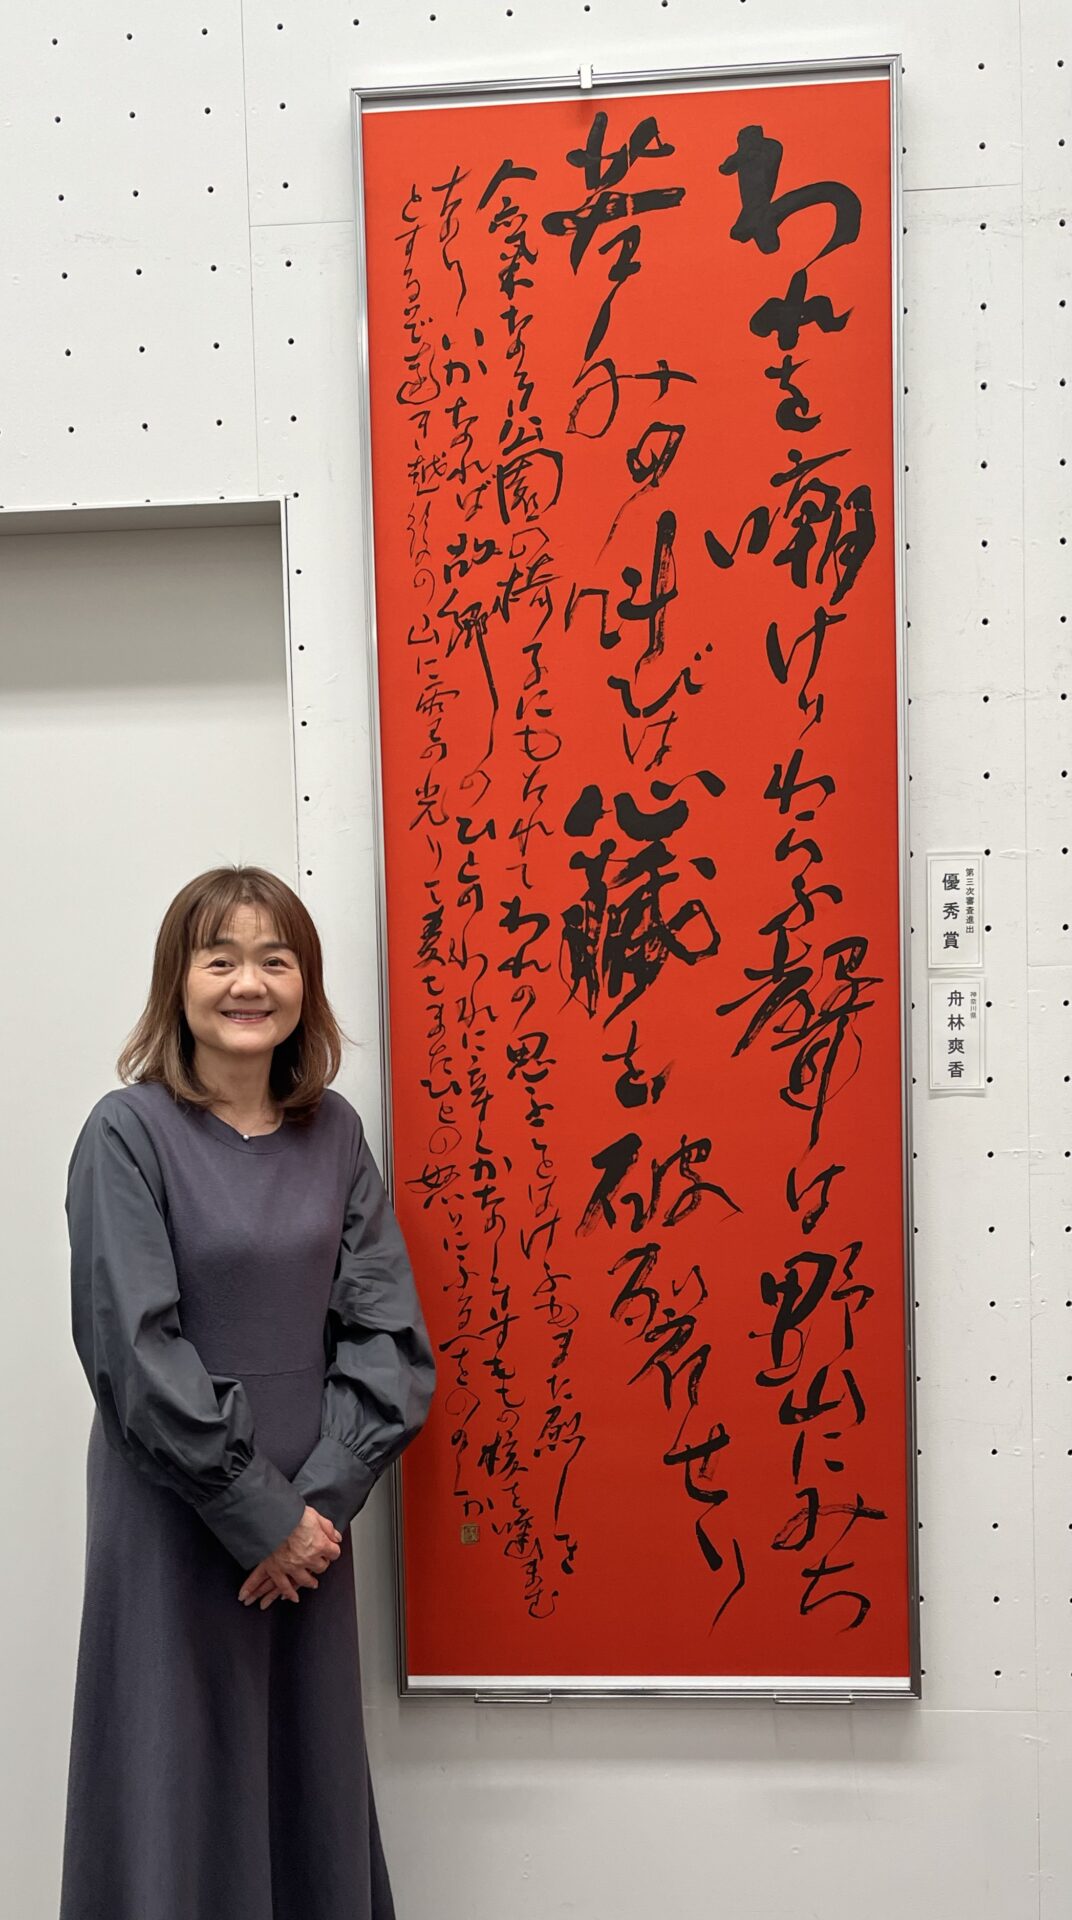 われを嘲けりわらふ聲は野山にみち
苦しみの叫びは心臓を破裂せり
人氣なき公園の椅子にもたれてわれの思ふことはけふもまた烈しき
なりいかなれば故郷のひとのわれに辛くかなしきすももの核を噛まむ
とするぞ遠き越後の山に雪の光りて麦もまたひとの怒りにふるへをののくか
第三次審査進出
優秀賞
神奈川県
舟林爽香